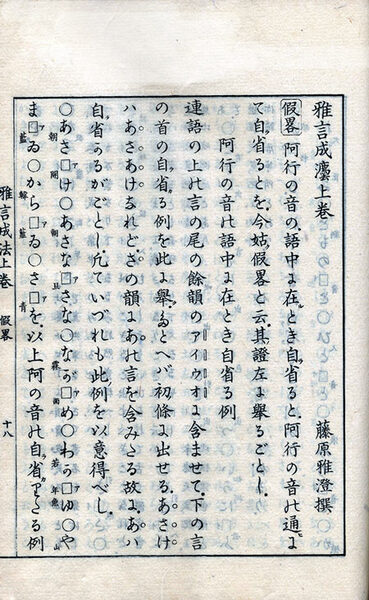 雅言成灋上卷　藤原雅澄撰
假畧 阿行の音の、語中に在とき自省ると、阿行の音の通に
て自省るとを、今姑假畧と云、其證左に擧るごとし、
阿行の音の語中に在とき自省る例
連語の上の言の尾の餘韻のアイウオに含ませて、下の言
の首の自省る例を此に擧、たとへバ初條に出せる、あさけ
ハあさあけなれど、さの韻にあの言を含みたる故に、あハ
自省かるがごとし、凡ていづれも此例を以意得べし、
○あさ□け○あさな□さな○なが□め○わか□ゆ○や
ま□ゐ○から□ゐ○さ□を、以上阿の音の自省りたる例
雅言成法上卷　假畧　十八